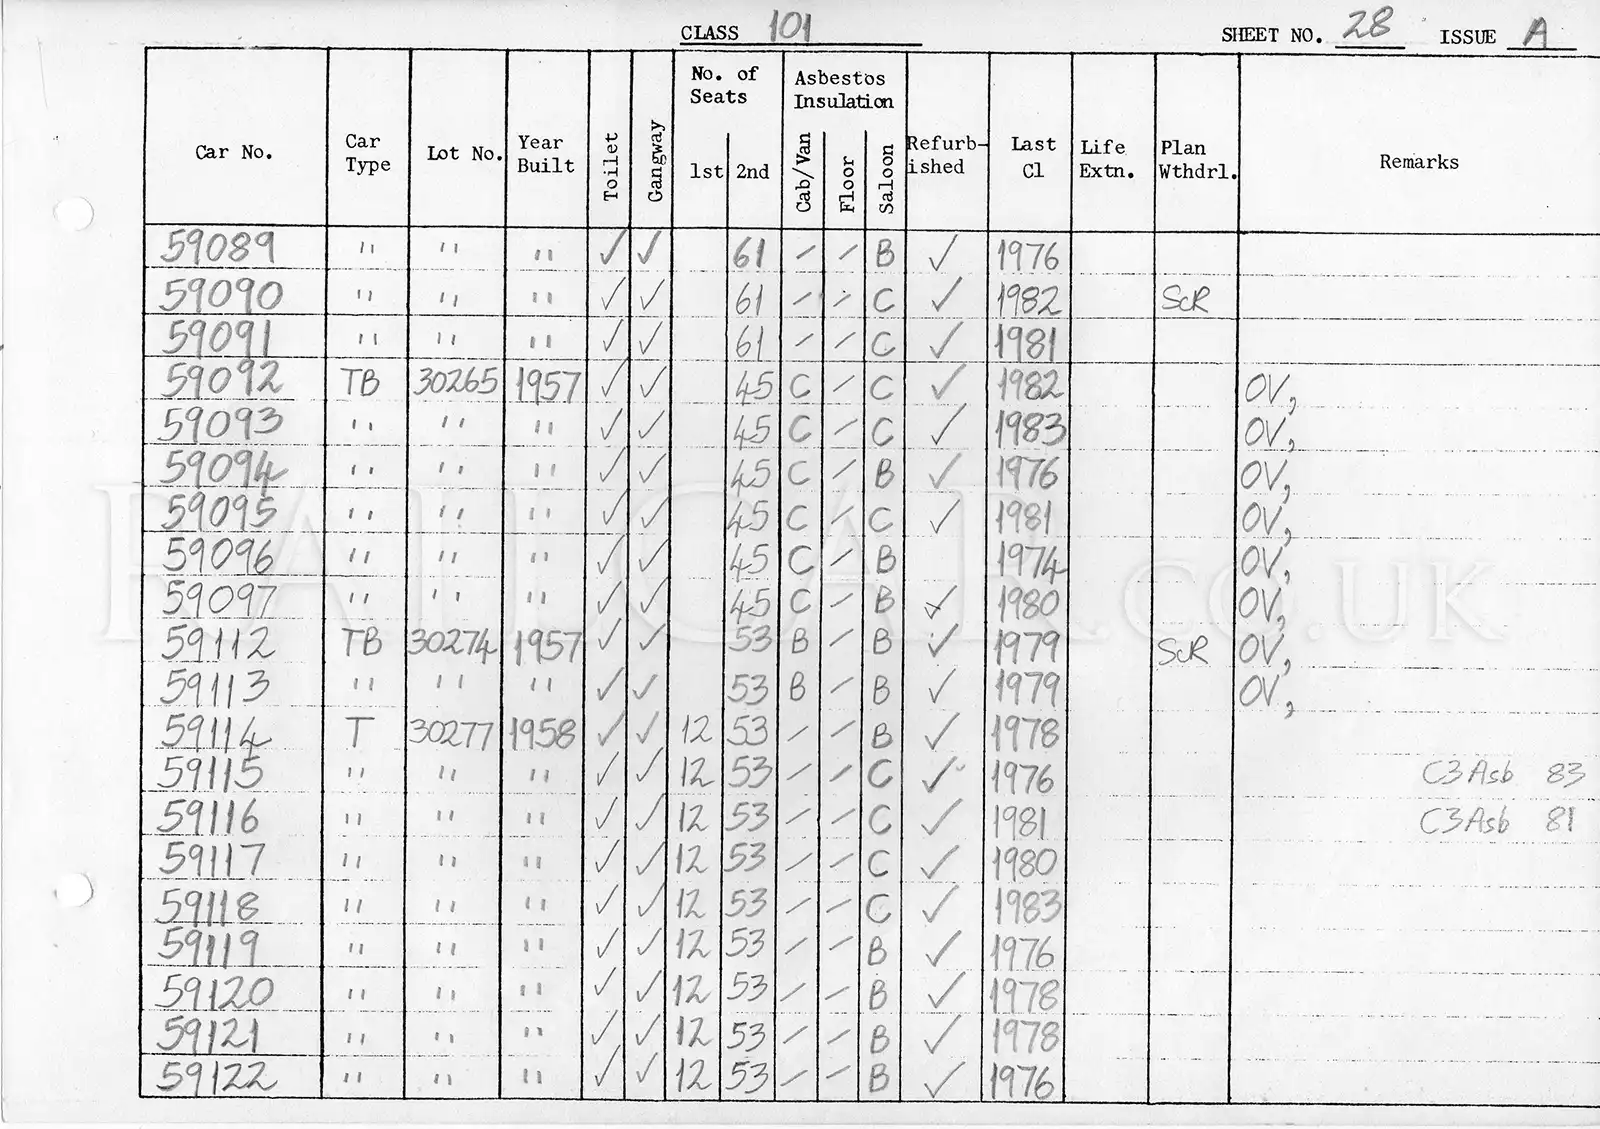 CLASS 101 SHEET NO. 28 ISSUE A
Car No. Car Type Lot No. Year Built Toilet Gangway No. of Seats 1st 2nd Asbestos Insulation Cab/Van Floor Saloon Refurb-ished Last Cl Life Extn. Plan Wthdrl. Remarks
59089 " " " ✓ ✓ 61 / / B ✓ 1976
59090 " " " ✓ ✓ 61 / / C ✓ 1982 ScR
59091 " " " ✓ ✓ 61 / / C ✓ 1981
59092 TB 30265 1957 ✓ ✓ 45 C / C ✓ 1982 OV,
59093 " " " ✓ ✓ 45 C / C ✓ 1983 OV,
59094 " " " ✓ ✓ 45 C / B ✓ 1976 OV,
59095 " " " ✓ ✓ 45 C / C ✓ 1981 OV,
59096 " " " ✓ ✓ 45 C / B 1974 OV,
59097 " " " ✓ ✓ 45 C / B ✓ 1980 OV,
59112 TB 30274 1957 ✓ ✓ 53 B / B ✓ 1979 ScR OV,
59113 " " " ✓ ✓ 53 B / B ✓ 1979 OV,
59114 T 30277 1958 ✓ ✓ 12 53 / / B ✓ 1978
59115 " " " ✓ ✓ 12 53 / / C ✓ 1976 C3 Asb 83
59116 " " " ✓ ✓ 12 53 / / C ✓ 1981 C3 Asb 81
59117 " " " ✓ ✓ 12 53 / / C ✓ 1980
59118 " " " ✓ ✓ 12 53 / / C ✓ 1983
59119 " " " ✓ ✓ 12 53 / / B ✓ 1976
59120 " " " ✓ ✓ 12 53 / / B ✓ 1978
59121 " " " ✓ ✓ 12 53 / / B ✓ 1978
59122 " " " ✓ ✓ 12 53 / / B ✓ 1976
RAILCAR.CO.UK